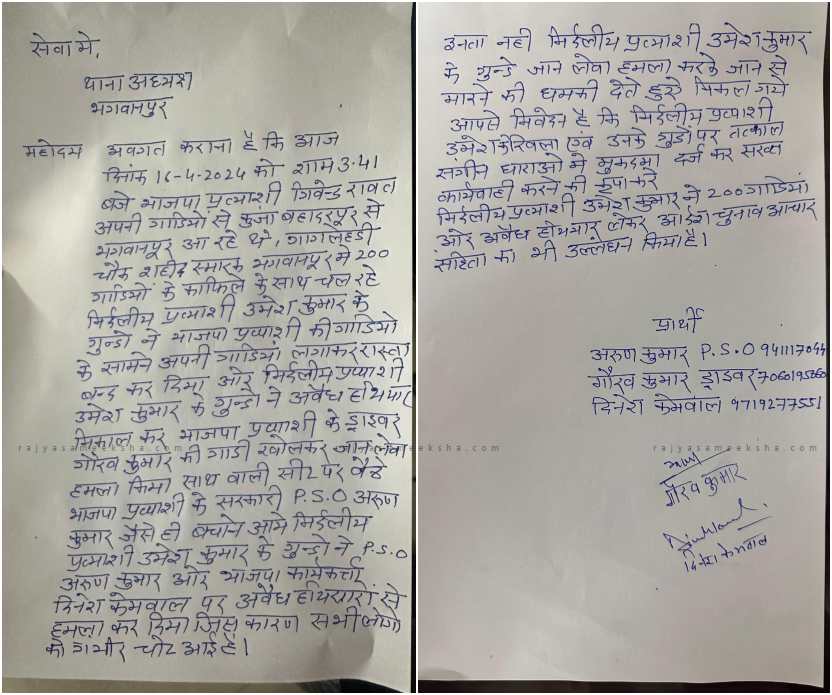 सेवा मे,
थाना अध्यक्ष
भगवानपुर
महोदय अवगत कराना है कि आज
दिनांक 16-4-2024 को शाम 3.41
बजे भाजपा प्रत्याशी त्रिवेन्द्र रावत
अपनी गाडियो से कुंजा बहादरपुर से
भगवानपुर आ रहे थे, गागलहेडी
चौक शहीद स्मारक भगवानपुर मे 200
गाडियों के काफिले के साथ चल रहे
निर्दलीय प्रत्याशी उमेश कुमार के
गुन्डो ने भाजपा प्रत्याशी की गाडियो
के सामने अपनी गाडियां लगाकर रास्ता
बन्द कर दिया और निर्दलीय प्रत्याशी
उमेश कुमार के गुन्डो ने अवैध हथियार
निकाल कर भाजपा प्रत्याशी के ड्राइवर
गौरव कुमार की गाडी खोलकर जान लेवा
हमला किया साथ वाली सीट पर बैठे
भाजपा प्रत्याशी के सरकारी P.S.O अरुण
कुमार जैसे ही बचाने आये निर्दलीय
प्रत्याशी उमेश कुमार के गुन्डो ने P.S.O
अरुण कुमार और भाजपा कार्यकर्त्ता
दिनेश केमवाल पर अवैध हथियारो से
हमला कर दिया जिस कारण सभी लोगो
को गम्भीर चोट आई है।
इतना नही निर्दलीय प्रत्याशी उमेश कुमार
के गुन्डे जान लेवा हमला करके जान से
मारने की धमकी देते हुऐ निकल गये
आपसे निवेदन है कि निर्दलीय प्रत्याशी
उमेश एवं उनके गुंडो पर तत्काल
संगीन धाराओ मे मुकदमा दर्ज कर सख्त
कार्यवाही करने की कृपा करे
निर्दलीय प्रत्याशी उमेश कुमार ने 200 गाडियां
और अवैध हथियार लेकर आर्दश चुनाव आचार
संहिता का भी उल्लंघन किया है।
प्रार्थी
अरुण कुमार P.S.O 941117044
गौरव कुमार ड्राइवर 7060195260
दिनेश केमवाल 9719277551
गौरव कुमार
दिनेश केमवाल
rajyasameeksha.com
rajyasameeksha.com